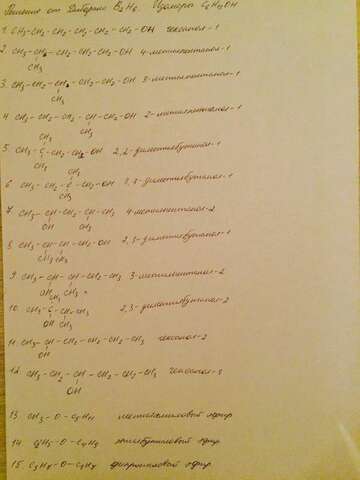 Решение от Изомеры C₆H₁₃OH
1. CH₃-CH₂-CH₂-CH₂-CH₂-CH₂-OH гексанол-1
2. CH₃-CH-CH₂-CH₂-CH₂-OH 4-метилпентанол-1
CH₃
3. CH₃-CH₂-CH-CH₂-CH₂-OH 3-метилпентанол-1
CH₃
4. CH₃-CH₂-CH₂-CH-CH₂-OH 2-метилпентанол-1
CH₃
CH₃
5. CH₃-C-CH₂-CH₂-OH 2,2-диметилбутанол-1
CH₃
CH₃
6 CH₃-CH₂-C-CH₂-OH 3,3-диметилбутанол-1
CH₃
7. CH₃-CH-CH₂-CH-CH₃ 4-метилпентанол-2
OH CH₃
8 CH₃-CH-CH-CH₂-OH 2,3-диметилбутанол-1
CH₃ CH₃
9. CH₃-CH-CH-CH₂-CH₃ 3-метилпентанол-2
OH CH₃
CH₃
10. CH₃-C-CH-CH₃ 2,3-диметилбутанол-2
OH CH₃
11. CH₃-CH-CH₂-CH₂-CH₂-CH₃ гексанол-2
OH
12. CH₃-CH₂-CH-CH₂-CH₂-CH₃ гексанол-3
OH
13 CH₃-O-C₅H₁₁ эфир
14. C₂H₅-O-C₄H₉ этилбутиловый эфир
15. C₃H₇-O-C₃H₇ дипропиловый эфир